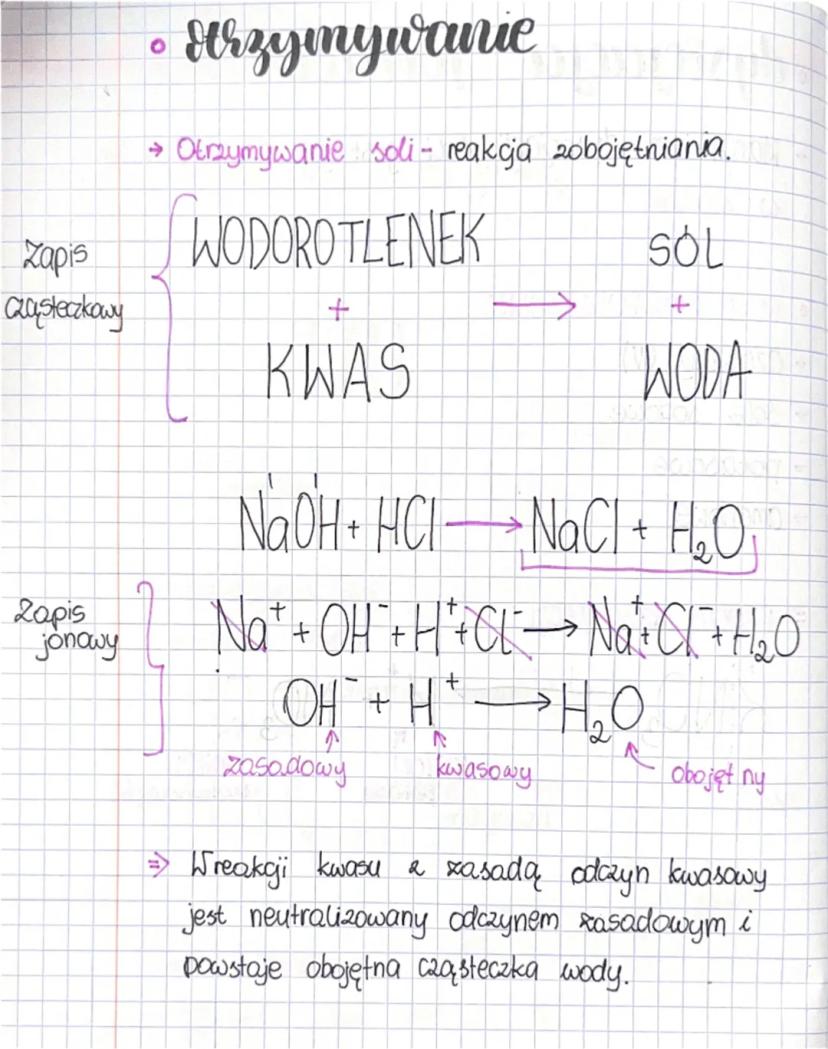 • Otrzymywanie
→ Otrzymywanie soli - reakcja zobojętniania.
Zapis cząsteczkowy
WODOROTLENEK + KWAS → SÓL + WODA
NaOH + HCl → NaCl + H₂O
Zapis jonowy
Na⁺ + OH⁻ + H⁺ + Cl⁻ → Na⁺ + Cl⁻ + H₂O
OH⁻ + H⁺ → H₂O
zasadowy kwasowy obojętny
⇒ W reakcji kwasu z zasadą odczyn kwasowy
jest neutralizowany odczynem zasadowym i
powstaje obojętna cząsteczka wody.